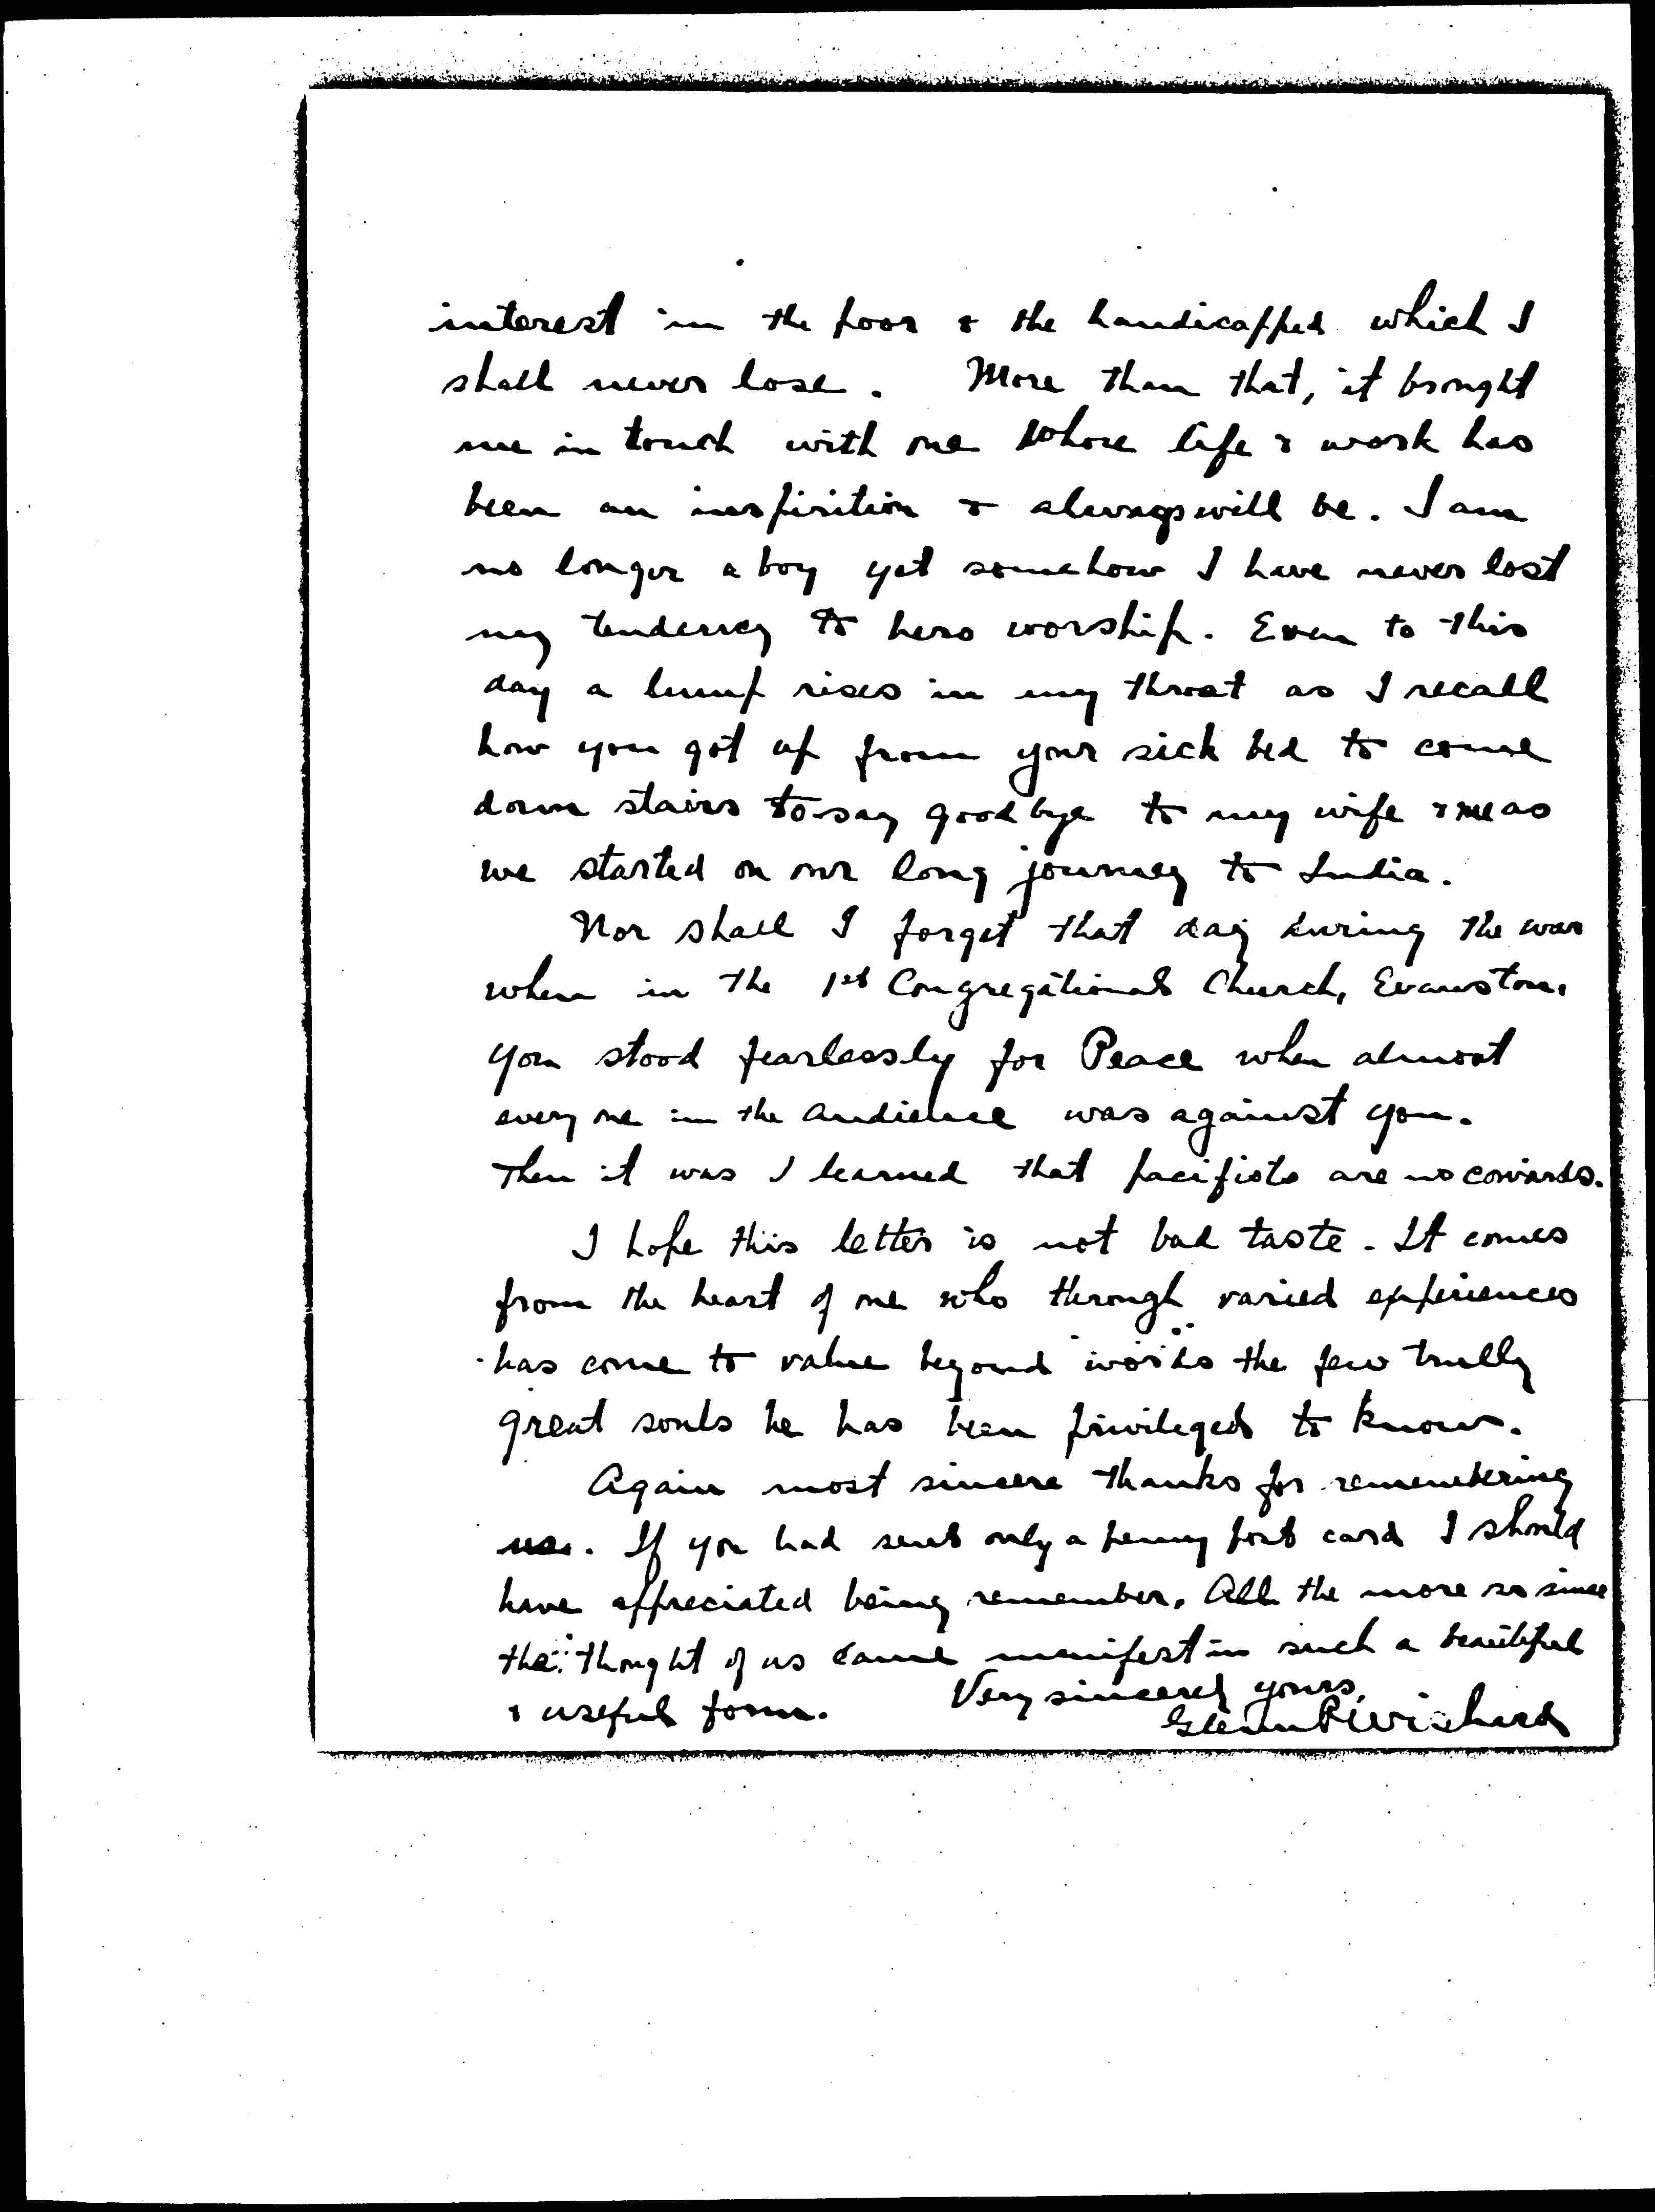 interest in the poor & the handicapped which I
shall never lose. More than that, it brought
me in touch with one whose life & work has
been an inspirition & always will be. I am
no longer a boy yet somehow I have never lost
my tendency to hero worship. Even to this
day a lump rises in my throat as I recall
how you got up from your sick bed to come
down stairs to say good bye to my wife & me as
we started on our long journey to India.
Nor shall I forget that day during the war
when in the 1st Congregational Church, Evanston,
you stood fearlessly for Peace when almost
every one in the audience was against you.
Then it was I learned that pacifists are no cowards.
I hope this letter is not bad taste. It comes
from the heart of one who through varied experiences
has come to value beyond words the few trully
great souls he has been privileged to know.
Again most sincere thanks for remembering
us. If you had sent only a penny post card I should
have appreciated being remember. All the more so since
the thought of us came manifest in such a beautiful
& useful form. Very sincerely yours,
Glenn P Wishard